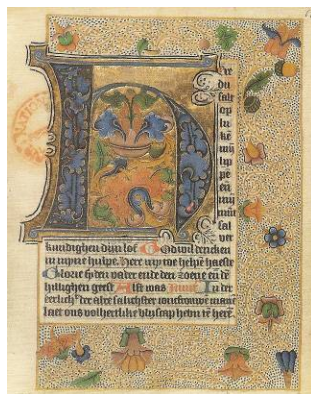 Here
du
salt
op
lu
kē
mȳ
lip
pe
eñ
mȳ
mūt
sal
ver
kundighen dyn lof God wil dencken
in myne hulpe. Here my toe helpē haeste
Glorie si den vader ende den zoene eñ dē
hillighen geest Alst was Amen. In der
eerlich der alre salichster ioncfrouwe marie
laet ons volherdelike blyscap hebn in here.